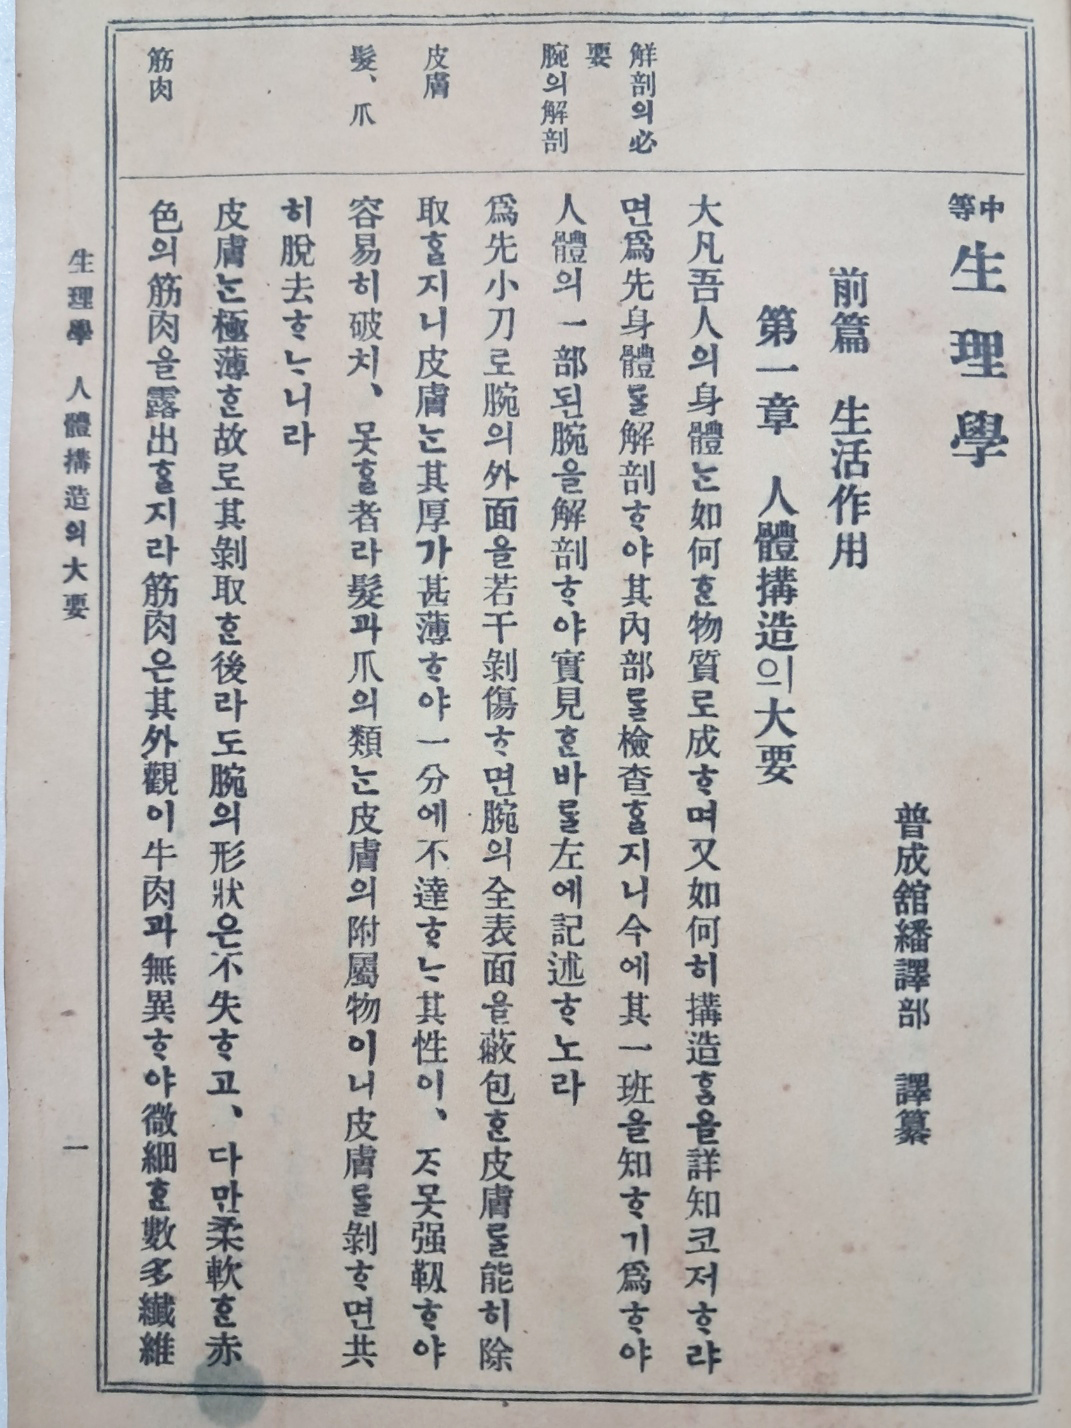 中等 生理學
普成舘繙譯部 譯纂
前篇 生活作用
第一章 人體搆造의大要
解剖의必
要
腕의解剖
皮膚
髮、爪
筋肉
大凡吾人의身體ᄂᆞᆫ如何ᄒᆞᆫ物質로成ᄒᆞ며又如何히搆造ᄒᆞᆷ을詳知코저ᄒᆞ랴
면爲先身體ᄅᆞᆯ解剖ᄒᆞ야其內部ᄅᆞᆯ檢查ᄒᆞᆯ지니今에其一班을知ᄒᆞ기爲ᄒᆞ야
人體의一部된腕을解剖ᄒᆞ야實見ᄒᆞᆫ바ᄅᆞᆯ左에記述ᄒᆞ노라
爲先小刀로腕의外面을若干剝傷ᄒᆞ면腕의全表面을蔽包ᄒᆞᆫ皮膚ᄅᆞᆯ能히除
取ᄒᆞᆯ지니皮膚ᄂᆞᆫ其厚가甚薄ᄒᆞ야一分에不達ᄒᆞᄂᆞ其性이、ᄌᆞ못强靱ᄒᆞ야
容易히破치、못ᄒᆞᆯ者라髮과爪의類ᄂᆞᆫ皮膚의附屬物이니皮膚ᄅᆞᆯ剝ᄒᆞ면共
히脫去ᄒᆞᄂᆞ니라
皮膚ᄂᆞᆫ極薄ᄒᆞᆫ故로其剝取ᄒᆞᆫ後라도腕의形狀은不失ᄒᆞ고、다만柔軟ᄒᆞᆫ赤
色의筋肉을露出ᄒᆞᆯ지라筋肉은其外觀이牛肉과無異ᄒᆞ야微細ᄒᆞᆫ數多纖維
生理學 人體搆造의大要
一